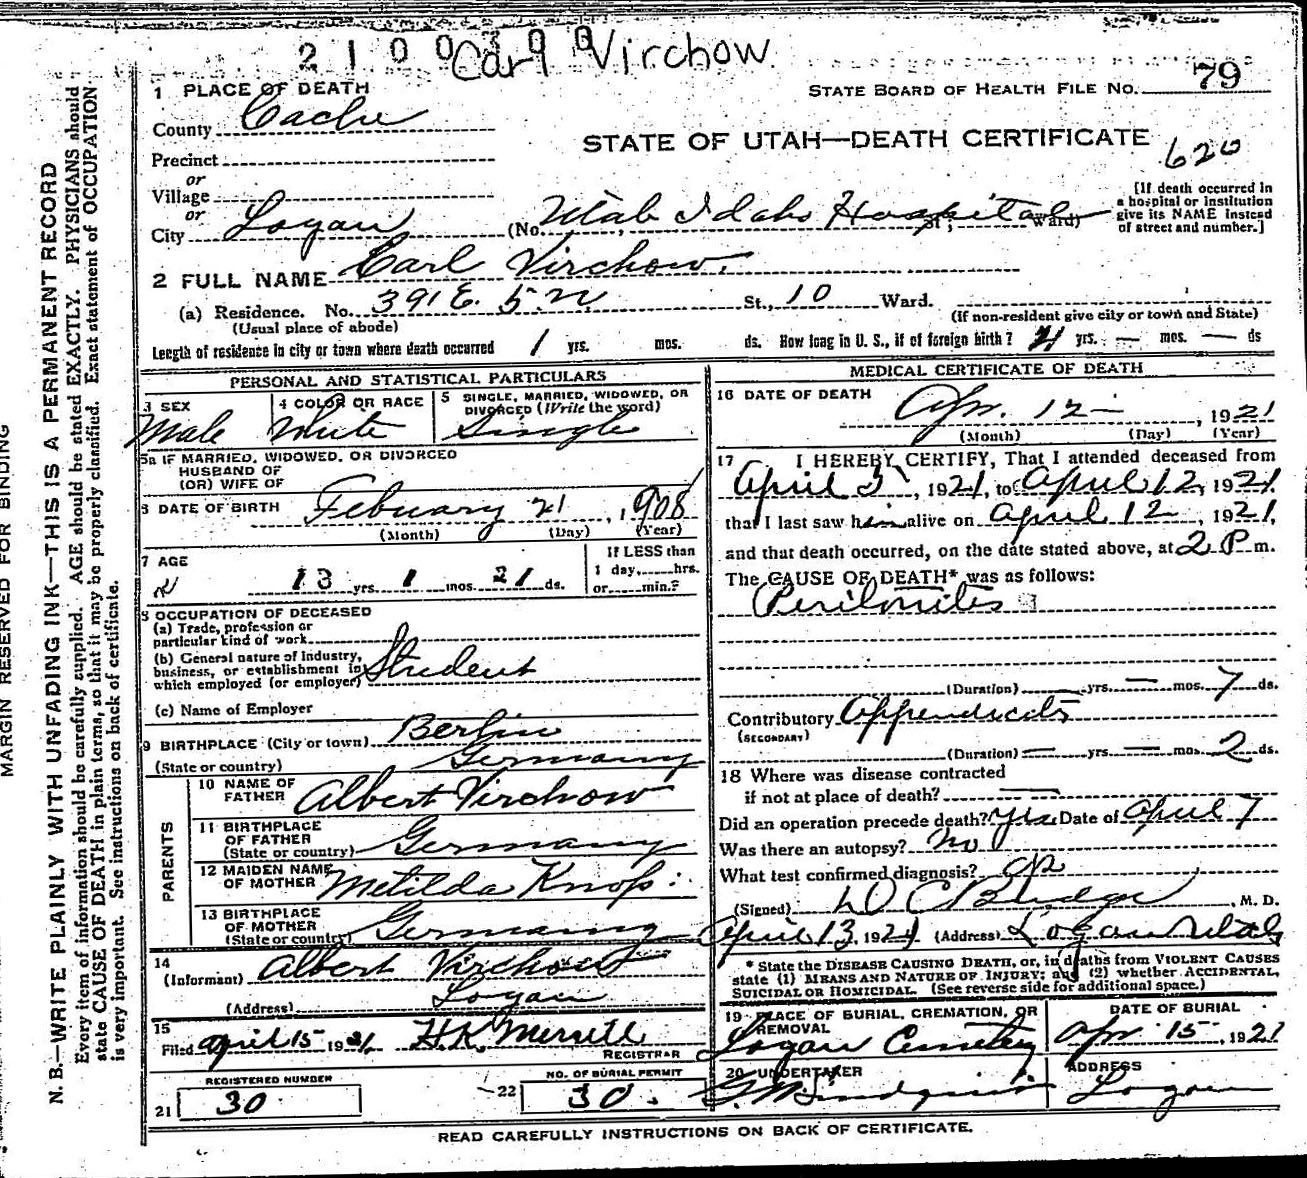 2 1 0 0 3 0 0
Carl Virchow.
1 PLACE OF DEATH
STATE BOARD OF HEALTH FILE NO. 79
County Cache
STATE OF UTAH—DEATH CERTIFICATE
620
Precinct
or
Village
or
City Logan (No. Utah Idaho Hospital St; Ward)
[If death occurred in
a hospital or institution
give its NAME instead
of street and number.]
2 FULL NAME Carl Virchow.
(a) Residence. No. 391 E. 5 N St., 10 Ward.
(Usual place of abode)
(If non-resident give city or town and State)
Length of residence in city or town where death occurred 1 yrs. mos. ds. How long in U. S., if of foreign birth? yrs. — mos. — ds
PERSONAL AND STATISTICAL PARTICULARS
3 SEX
Male
4 COLOR OR RACE
White
5 SINGLE, MARRIED, WIDOWED, OR
DIVORCED (Write the word)
Single
5a IF MARRIED, WIDOWED, OR DIVORCED
HUSBAND OF
(OR) WIFE OF
6 DATE OF BIRTH Febuary 21, 1908
(Month) (Day) (Year)
7 AGE
13 yrs. 1 mos. 21 ds.
If LESS than
1 day, hrs.
or min.?
8 OCCUPATION OF DECEASED
(a) Trade, profession or
particular kind of work
(b) General nature of industry,
business, or establishment in
which employed (or employer) Student
(c) Name of Employer
9 BIRTHPLACE (City or town) Berlin
(State or country) Germany
PARENTS
10 NAME OF
FATHER Albert Virchow
11 BIRTHPLACE
OF FATHER
(State or country) Germany
12 MAIDEN NAME
OF MOTHER Metilda Knop
13 BIRTHPLACE
OF MOTHER
(State or country) Germany
14
(Informant) Albert Virchow
(Address) Logan
15
Filed april 15 1921 H.K. Merrill
REGISTRAR
21 REGISTERED NUMBER
30
22 NO. OF BURIAL PERMIT
30.
MEDICAL CERTIFICATE OF DEATH
16 DATE OF DEATH
Apr. 12 — , 1921
(Month) (Day) (Year)
17 I HEREBY CERTIFY, That I attended deceased from
April 5, 1921, to April 12, 1921
that I last saw him alive on April 12, 1921,
and that death occurred, on the date stated above, at 2 P m.
The CAUSE OF DEATH* was as follows:
Peritonites
(Duration) yrs. — mos. 7 ds.
Contributory Appendicits
(SECONDARY)
(Duration) — yrs. — mos. 2 ds.
18 Where was disease contracted
if not at place of death? —
Did an operation precede death? yes Date of April 7
Was there an autopsy? No
What test confirmed diagnosis? op
(Signed) D C Budge, M. D.
April 13, 1921 (Address) Logan Utah
* State the DISEASE CAUSING DEATH, or, in deaths from VIOLENT CAUSES
state (1) MEANS AND NATURE OF INJURY; and (2) whether ACCIDENTAL,
SUICIDAL OR HOMICIDAL. (See reverse side for additional space.)
19 PLACE OF BURIAL, CREMATION, OR
REMOVAL
Logan Cemetery
DATE OF BURIAL
Apr 15, 1921
20 UNDERTAKER
G. W. Lindquist
ADDRESS
Logan
READ CAREFULLY INSTRUCTIONS ON BACK OF CERTIFICATE.
MARGIN RESERVED FOR BINDING
N. B.—WRITE PLAINLY WITH UNFADING INK—THIS IS A PERMANENT RECORD
Every item of information should be carefully supplied. AGE should be stated EXACTLY. PHYSICIANS should
state CAUSE OF DEATH in plain terms, so that it may be properly classified. Exact statement of OCCUPATION
is very important. See instructions on back of certificate.